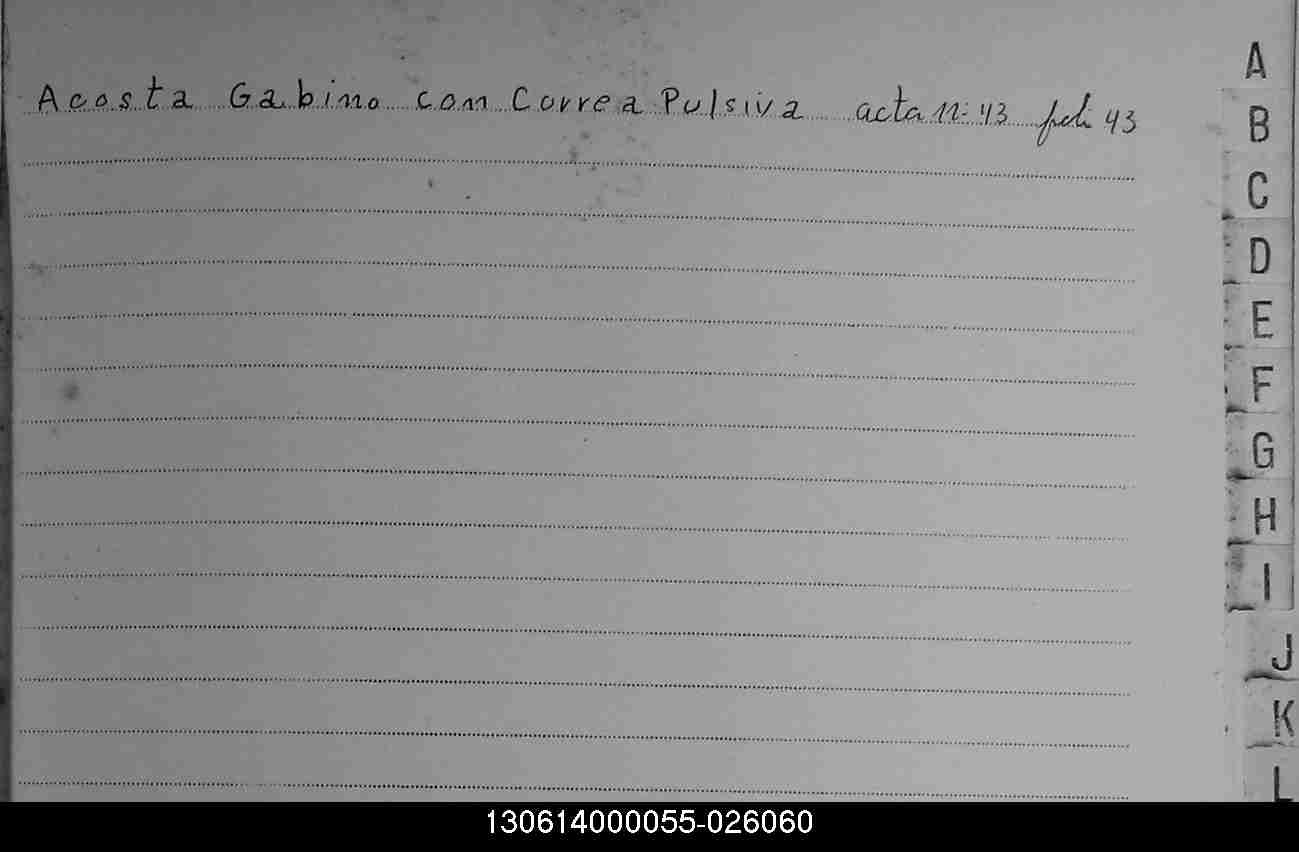 Acosta Gabino con Correa Pulsiva acta n: 43 foli 43
A
B
C
D
E
F
G
H
I
J
K
L
130614000055-026060